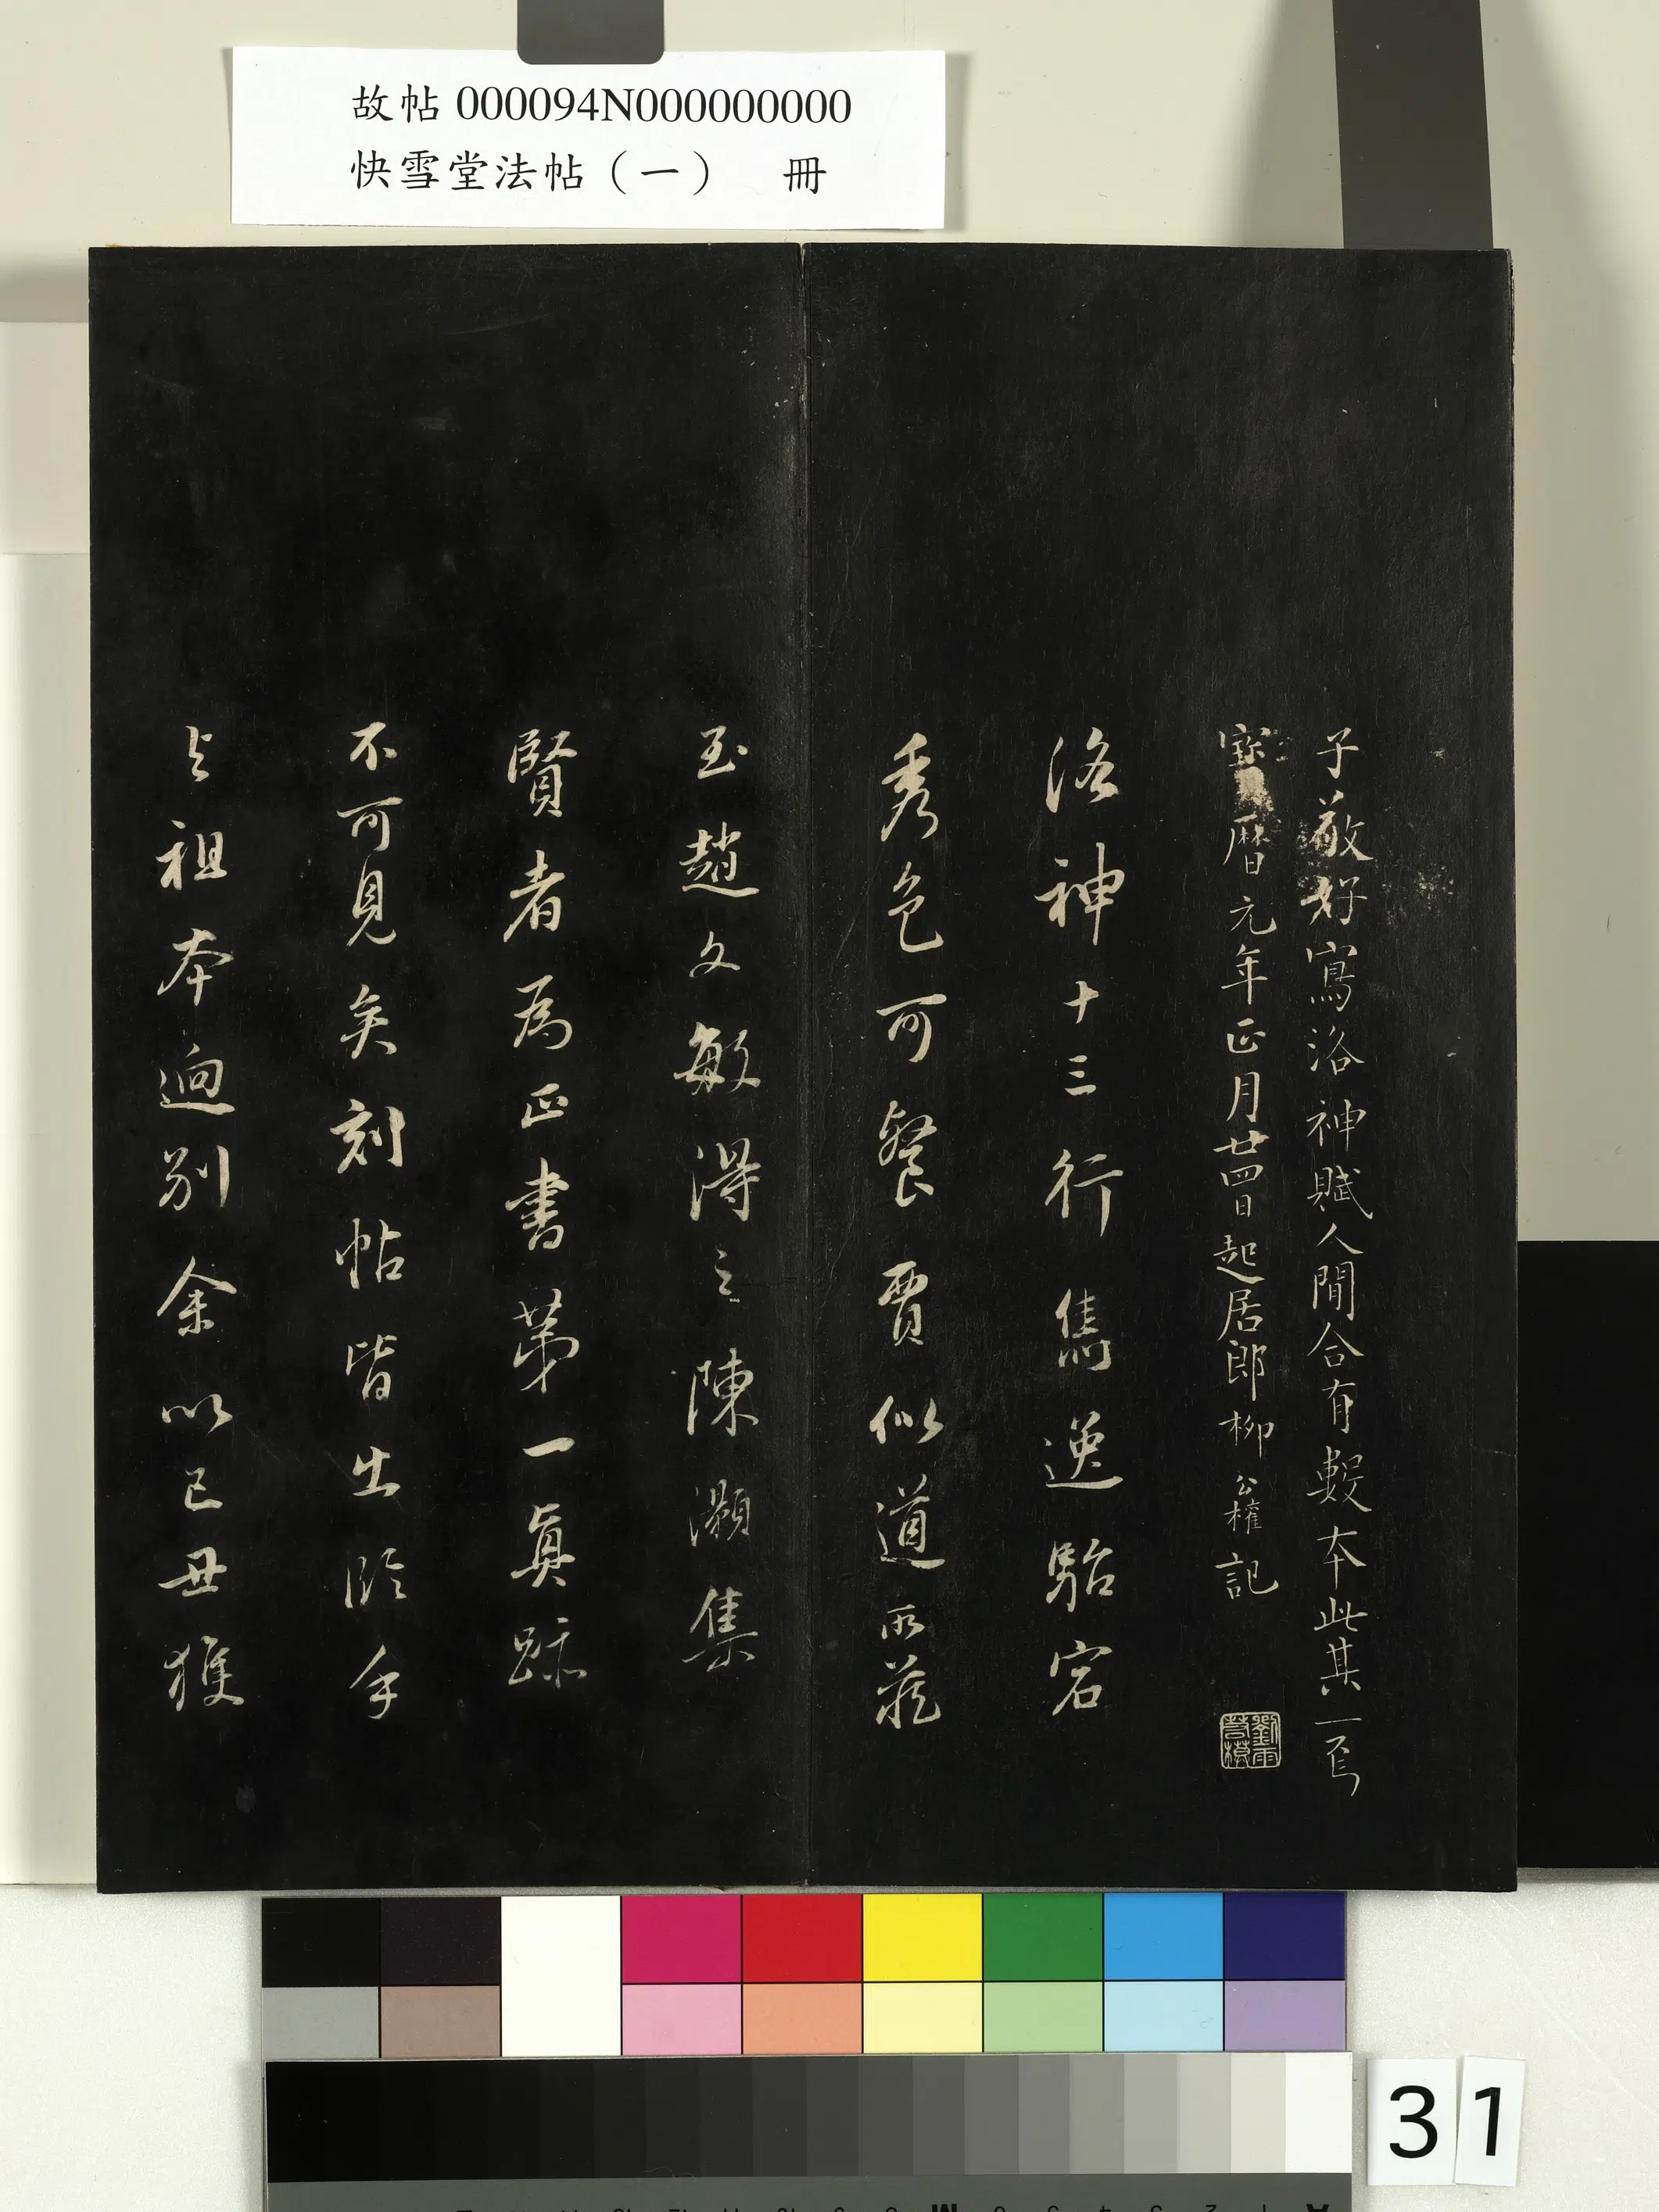 故帖 000094N000000000
快雪堂法帖（一）　冊
子敬好寫洛神賦人間合有數本此其一焉
寶曆元年正月廿四日起居郎柳公權記
劉雨若模
洛神十三行雋逸駘宕
秀色可餐賈似道所藏
至趙文敏得之陳灝集
賢者為正書第一真跡
不可見矣刻帖皆出臨手
与祖本迥別余以己丑獲
31